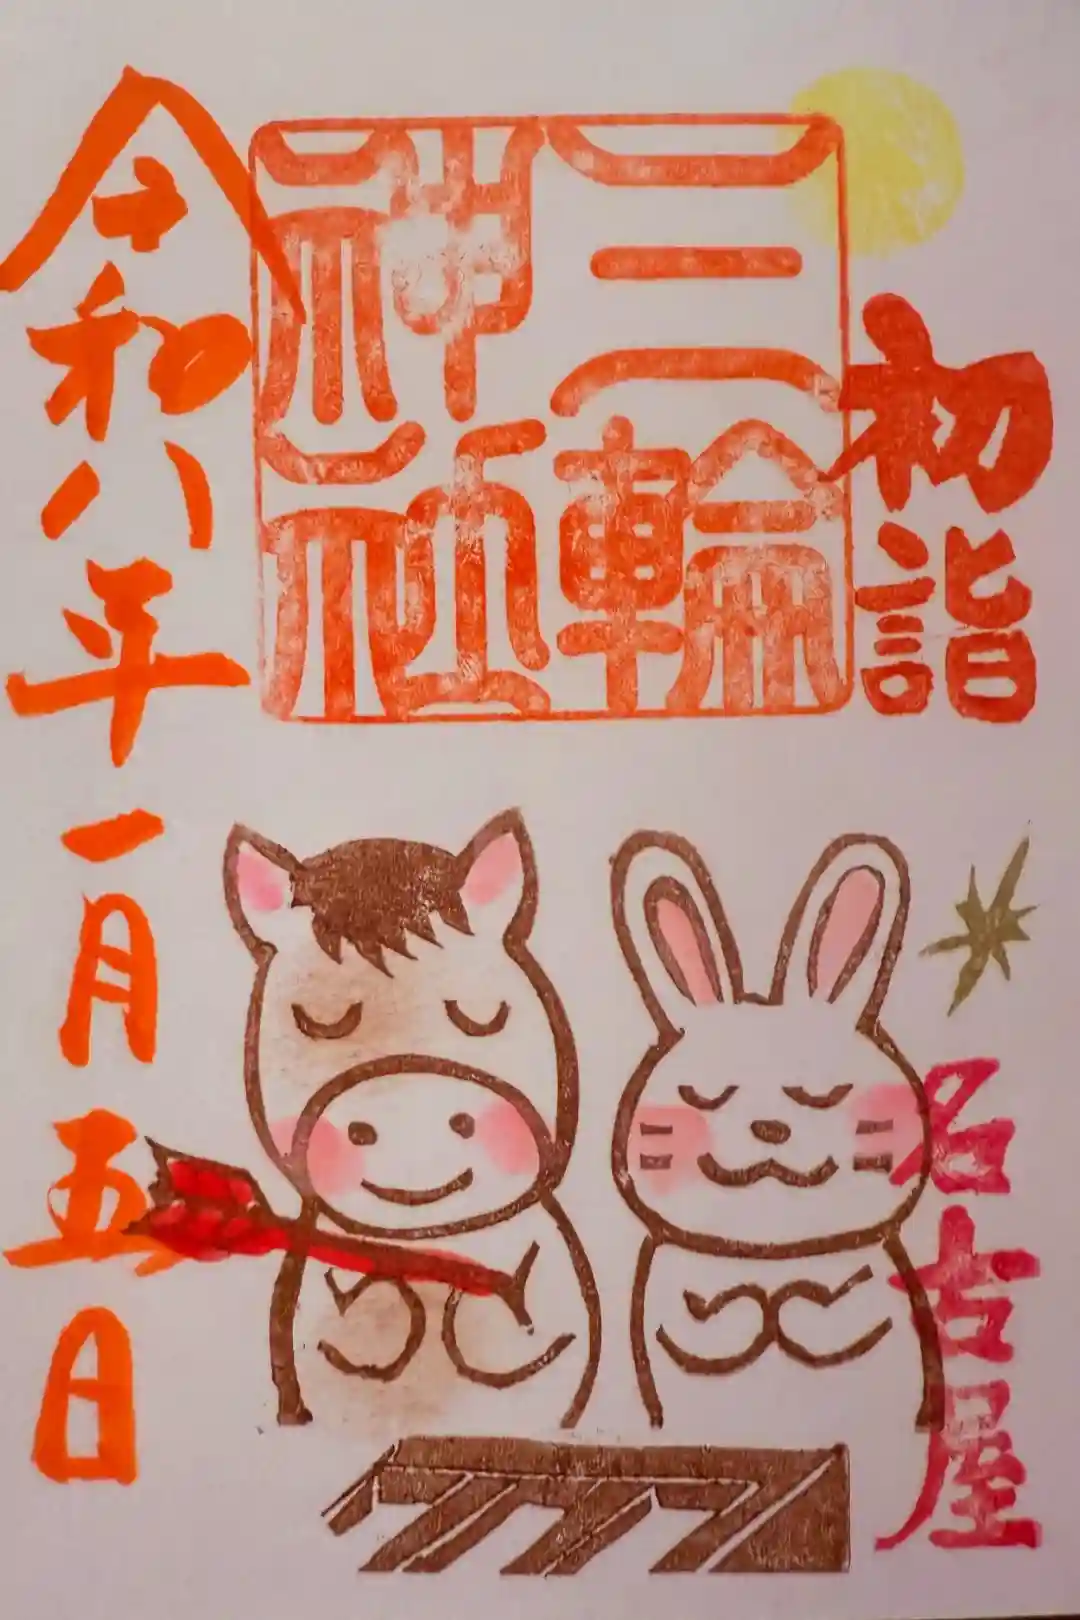 初詣
名古屋
三輪
神社
令和八年一月五日